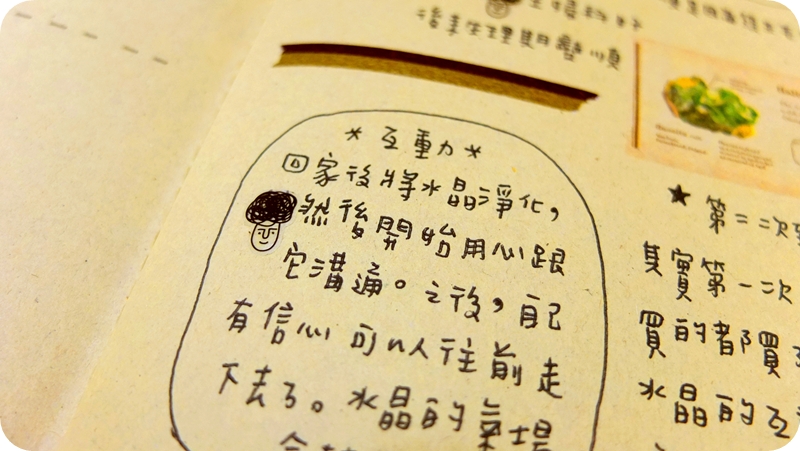 後續生理期變順
＊互動＊
回家後將水晶淨化，
然後開始用心跟
它溝通。之後，自己
有信心可以往前走
下去了。水晶的氣場
★第二次
其實第一次
買的都買
水晶的互